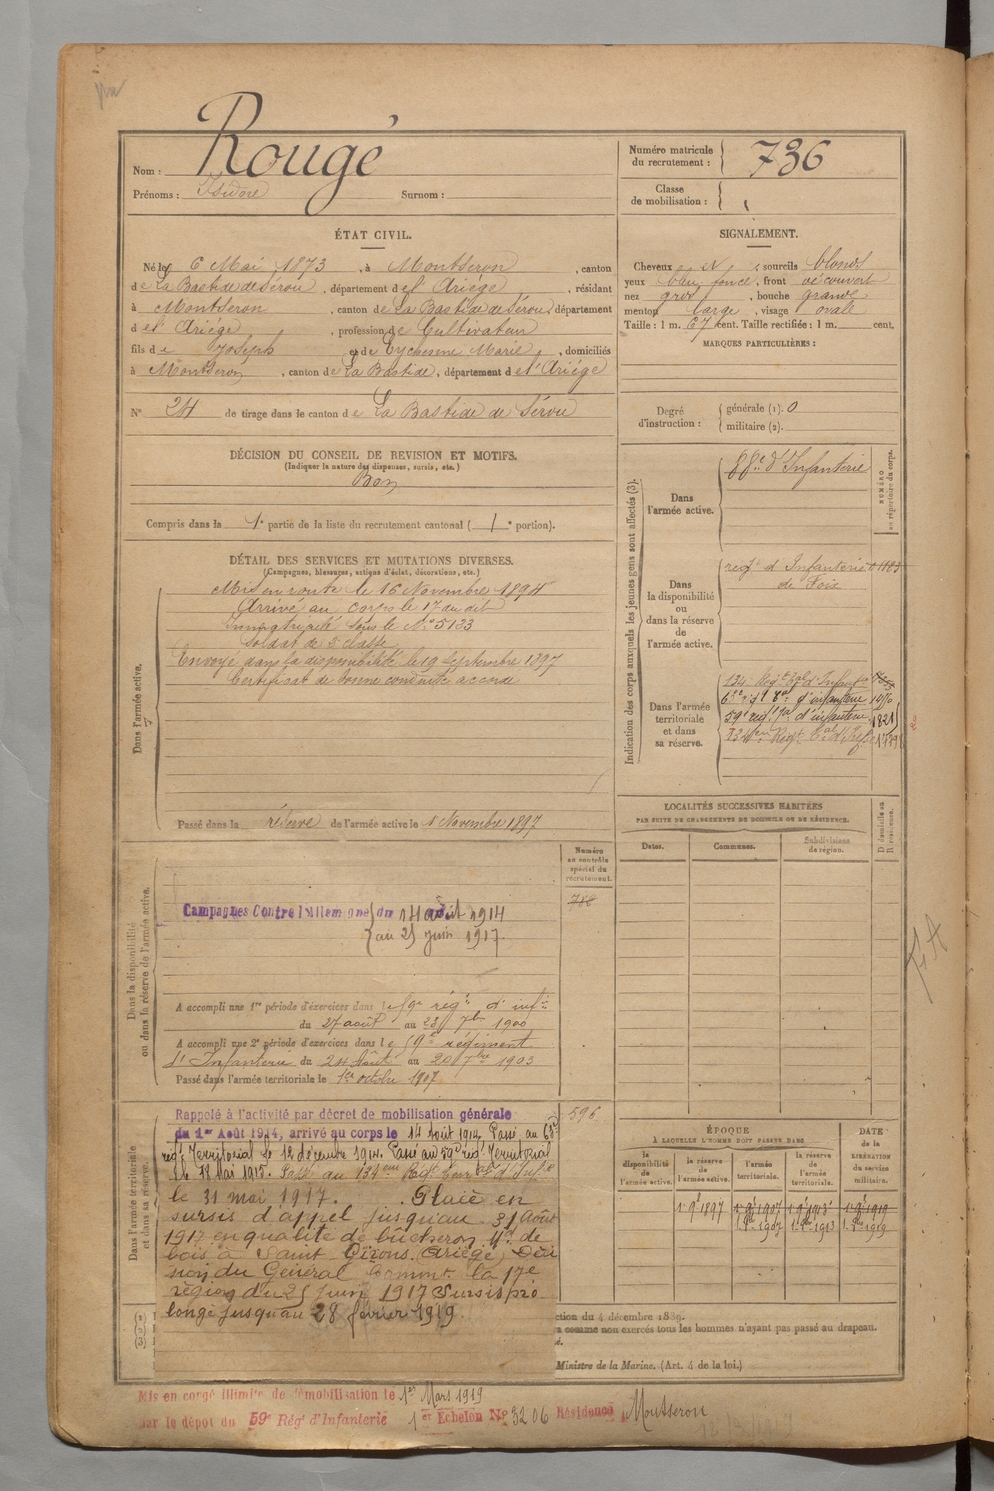 Rougé
Nom :
Prénoms : Isidore Surnom :
Numéro matricule du recrutement : 736
Classe de mobilisation :
ÉTAT CIVIL.
Né le 6 Mai 1873, à Montseron, canton
de La Bastide de Sérou, département de l'Ariége, résidant
à Montseron, canton de La Bastide de Sérou, département
d e l'Ariége, profession de Cultivateur
fils de Joseph et de Eychenne Marie, domiciliés
à Montseron, canton de La Bastide, département de l'Ariége
N° 24 de tirage dans le canton de La Bastide de Sérou
SIGNALEMENT.
Cheveux et, sourcils blonds
yeux bleu foncé, front découvert
nez gros, bouche grande
menton large, visage ovale
Taille : 1 m. 67 cent. Taille rectifiée : 1 m. cent.
MARQUES PARTICULIÈRES :
Degré d'instruction : générale (1). 0
militaire (2).
DÉCISION DU CONSEIL DE REVISION ET MOTIFS.
(Indiquer la nature des dispenses, sursis, etc.)
Bon
Compris dans la 1e partie de la liste du recrutement cantonal ( 1 e portion).
DÉTAIL DES SERVICES ET MUTATIONS DIVERSES.
(Campagnes, blessures, actions d'éclat, décorations, etc.)
Dans l'armée active.
Mis en route le 16 Novembre 1894
Arrivé au corps le 17 du dit
Immatriculé sous le N° 5133
Soldat de 2e classe
Envoyé dans la disponibilité le 19 Septembre 1897
Certificat de bonne conduite accordé
Passé dans la réserve de l'armée active le 1 Novembre 1897
Indication des corps auxquels les jeunes gens sont affectés (3).
Dans l'armée active.
88e d'Infanterie
NUMÉRO au répertoire du corps.
Dans la disponibilité ou dans la réserve de l'armée active.
regt d'Infanterie
de Foix
Dans l'armée territoriale et dans sa réserve.
134 Regt Tal d'Infant
63e régt Tal d'infanterie
59e régt Tal d'infanterie 1821
134em Regt Tal d'Infie
LOCALITÉS SUCCESSIVES HABITÉES
PAR SUITE DE CHANGEMENTS DE DOMICILE OU DE RÉSIDENCE.
Dates. Communes. Subdivisions de région.
D domicile ou R résidence.
Dans la disponibilité ou dans la réserve de l'armée active.
Numéro au contrôle spécial du recrutement.
788
Campagnes Contre l'Allemagne du 14 août 1914
au 25 juin 1917.
A accompli une 1re période d'exercices dans le 59e régt d'infie
du 27 août au 23 7bre 1900
A accompli une 2e période d'exercices dans le 59e régiment
d'Infanterie du 24 Août au 20 7bre 1903
Passé dans l'armée territoriale le 1er octobre 1907
Dans l'armée territoriale et dans sa réserve.
596
Rappelé à l'activité par décret de mobilisation générale
du 1er Août 1914, arrivé au corps le 14 Août 1914. Passé au 63e
régt Territorial le 12 décembre 1914. Passé au 59e régt Territorial
le 18 Mai 1915. Passé au 134em Regt Territ d'Infie
le 31 mai 1917. Placé en
sursis d'appel jusqu'au 31 Août
1917 en qualité de bûcheron Md de
bois à Saint Girons (Ariége) Déci
sion du Général Commt la 17e
région du 25 juin 1917 Sursis pro
longé jusqu'au 28 février 1919.
ÉPOQUE
À LAQUELLE L'HOMME DOIT PASSER DANS
la disponibilité de l'armée active. la réserve de l'armée active. l'armée territoriale. la réserve de l'armée territoriale.
DATE de la LIBÉRATION du service militaire.
1 9bre 1897 1 9bre 1907 1 9bre 1913 1 9bre 1919
1 8bre 1907 1 8bre 1913 1 8bre 1919
(1) (2) (3)
ction du 4 décembre 1889.
comme non exercés tous les hommes n'ayant pas passé au drapeau.
Ministre de la Marine. (Art. 4 de la loi.)
Mis en congé illimité de démobilisation le 1er Mars 1919
par le dépôt du 59e Régt d'Infanterie 1er Echelon N° 3206 Résidence Montseron